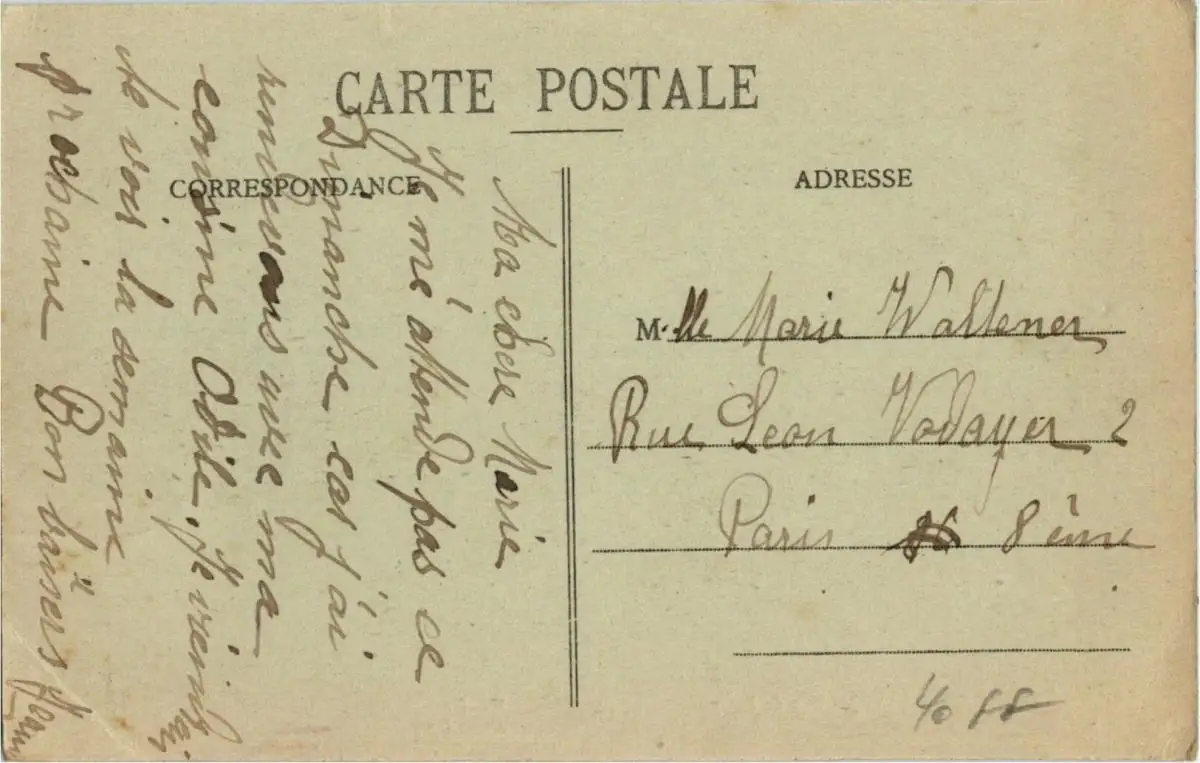 CARTE POSTALE
CORRESPONDANCE
ADRESSE
Ma chère Marie
Ne m'attende pas ce
Dimanche car j'ai
rendevous avec ma
cousine Odile. Je viendrai
te voir la semaine
prochaine Bon baisers
M.lle Marie Waltener
Rue Leon Vodayer 2
Paris 8ème
40 FF